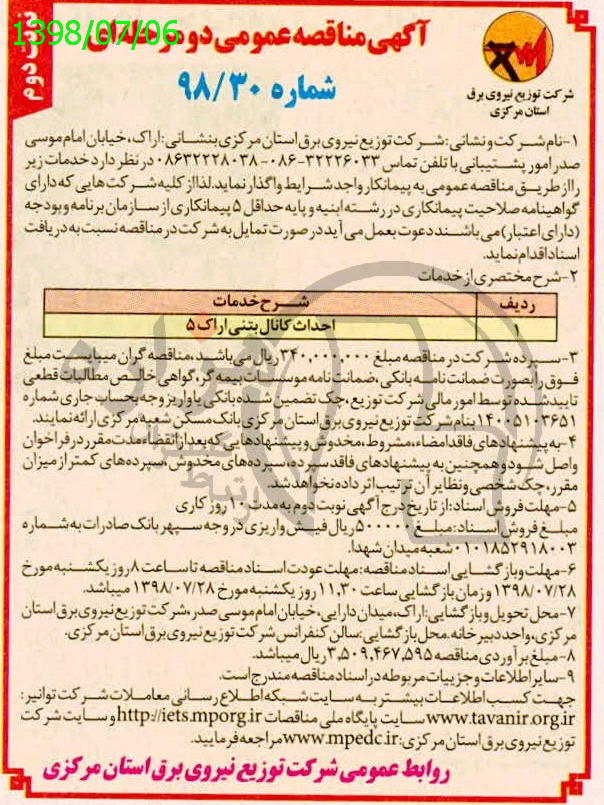 1398/07/06
نوبت دوم
آگهی مناقصه عمومی دو مرحله‌ای
شماره ۹۸/۳۰
شرکت توزیع نیروی برق
استان مرکزی
۱-نام شرکت و نشانی: شرکت توزیع نیروی برق استان مرکزی بنشانی: اراک، خیابان امام موسی
صدر امور پشتیبانی با تلفن تماس ۳۲۲۲۶۰۳۳-۰۸۶- ۰۸۶۳۲۲۲۸۰۳۸ در نظر دارد خدمات زیر
را از طریق مناقصه عمومی به پیمانکار واجد شرایط واگذار نماید. لذا از کلیه شرکت هایی که دارای
گواهینامه صلاحیت پیمانکاری در رشته ابنیه و پایه حداقل ۵ پیمانکاری از سازمان برنامه و بودجه
(دارای اعتبار) می باشند دعوت بعمل می آید در صورت تمایل به شرکت در مناقصه نسبت به دریافت
اسناد اقدام نماید.
۲-شرح مختصری از خدمات
ردیف شرح خدمات
۱ احداث کانال بتنی اراک ۵
۳-سپرده شرکت در مناقصه مبلغ ۳۴۰,۰۰۰,۰۰۰ ریال می باشد، مناقصه گران میبایست مبلغ
فوق را بصورت ضمانت نامه بانکی، ضمانت نامه موسسات بیمه گر، گواهی خالص مطالبات قطعی
تایید شده توسط امور مالی شرکت توزیع، چک تضمین شده بانکی یا واریز وجه بحساب جاری شماره
۱۴۰۰۵۱۰۳۶۵۱ بنام شرکت توزیع نیروی برق استان مرکزی بانک مسکن شعبه مرکزی ارائه نمایند.
۴-به پیشنهادهای فاقد امضاء، مشروط، مخدوش و پیشنهادهایی که بعد از انقضاء مدت مقرر در فراخوان
واصل شود و همچنین به پیشنهادهای فاقد سپرده، سپرده‌های مخدوش، سپرده‌های کمتر از میزان
مقرر، چک شخصی و نظایر آن ترتیب اثر داده نخواهد شد.
۵-مهلت فروش اسناد: از تاریخ درج آگهی نوبت دوم به مدت ۱۰ روز کاری
مبلغ فروش اسناد: مبلغ ۵۰۰۰۰۰ ریال فیش واریزی در وجه سپهر بانک صادرات به شماره
۰۱۰۱۸۵۲۹۱۸۰۰۳ شعبه میدان شهدا.
۶-مهلت و بازگشایی اسناد مناقصه: مهلت عودت اسناد مناقصه تا ساعت ۸ روز یکشنبه مورخ
۱۳۹۸/۰۷/۲۸ و زمان بازگشایی ساعت ۱۱,۳۰ روز یکشنبه مورخ ۱۳۹۸/۰۷/۲۸ میباشد.
۷-محل تحویل و بازگشایی: اراک، میدان دارایی، خیابان امام موسی صدر، شرکت توزیع نیروی برق استان
مرکزی، واحد دبیرخانه. محل بازگشایی: سالن کنفرانس شرکت توزیع نیروی برق استان مرکزی.
۸-مبلغ برآوردی مناقصه ۳,۵۰۹,۴۶۷,۵۹۵ ریال میباشد.
۹-سایر اطلاعات و جزییات مربوطه در اسناد مناقصه مندرج است.
جهت کسب اطلاعات بیشتر به سایت شبکه اطلاع رسانی معاملات شرکت توانیر:
www.tavanir.org.ir سایت پایگاه ملی مناقصات http://iets.mporg.ir و سایت شرکت
توزیع نیروی برق استان مرکزی: www.mpedc.ir مراجعه فرمایید.
روابط عمومی شرکت توزیع نیروی برق استان مرکزی